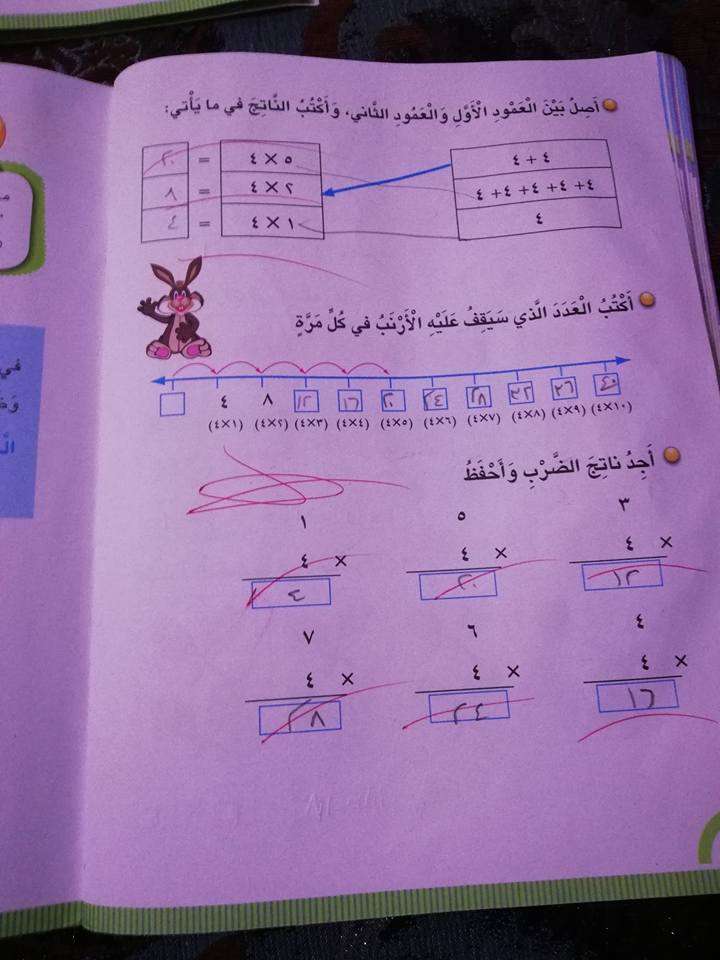 أَصِلُ بَيْنَ الْعَمْودِ الْأَوَّلِ وَالْعَمُودِ الثَّاني، وَأَكْتُبُ النَّاتِجَ في ما يَأْتي:
٤ + ٤
٤ × ٥ = ٢٠
٤ + ٤ + ٤ + ٤ + ٤
٤ × ٢ = ٨
٤
٤ × ١ = ٤
أَكْتُبُ الْعَدَدَ الَّذي سَيَقِفُ عَلَيْهِ الْأَرْنَبُ في كُلِّ مَرَّةٍ
٤ ٨ ١٢ ١٦ ٢٠ ٢٤ ٢٨ ٣٢ ٣٦ ٤٠
(٤×١) (٤×٢) (٤×٣) (٤×٤) (٤×٥) (٤×٦) (٤×٧) (٤×٨) (٤×٩) (٤×١٠)
أَجِدُ ناتِجَ الضَّرْبِ وَأَحْفَظُ
٣ ٥ ١
× ٤ × ٤ × ٤
١٢ ٢٠ ٤
٤ ٦ ٧
× ٤ × ٤ × ٤
١٦ ٢٤ ٢٨